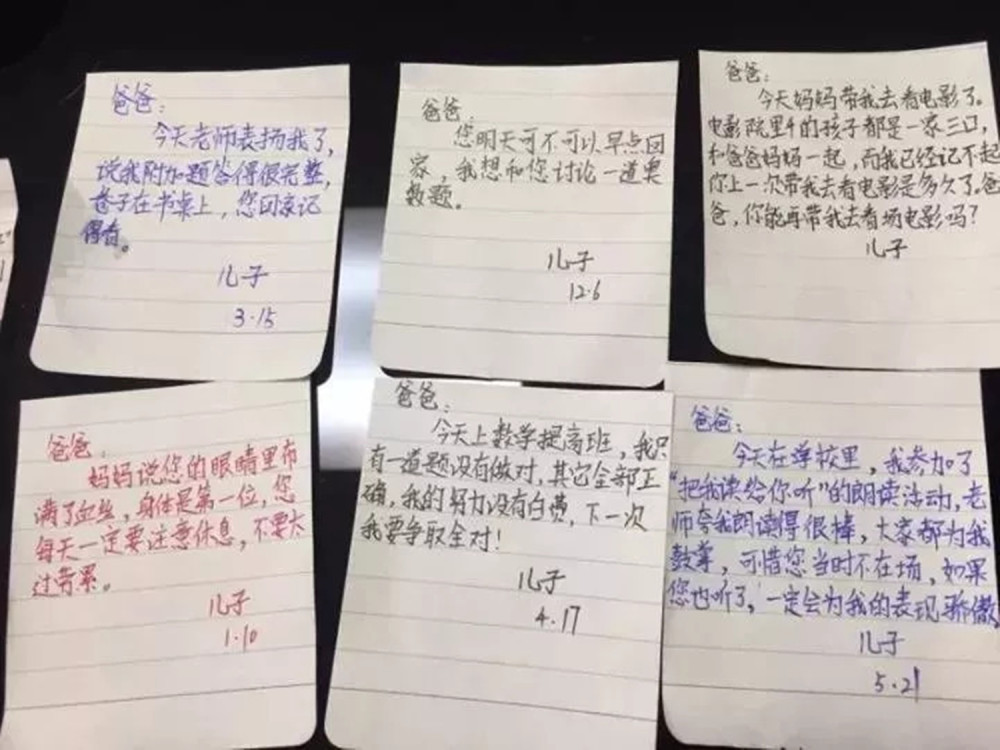 爸爸：
今天老师表扬我了，
说我附加题答得很完整，
卷子在书桌上，您回家记
得看。
儿子
3.15
爸爸：
您明天可不可以早点回
家，我想和您讨论一道奥
数题。
儿子
12.6
爸爸：
今天妈妈带我去看电影了。
电影院里的孩子都是一家三口，
和爸爸妈妈一起，而我已经记不起
你上一次带我去看电影是多久了。爸
爸，你能再带我去看场电影吗？
儿子
爸爸：
妈妈说您的眼睛里布
满了血丝，身体是第一位，您
每天一定要注意休息，不要太
过劳累。
儿子
1.10
爸爸：
今天上数学提高班，我只
有一道题没有做对，其它全部正
确，我的努力没有白费，下一次
我要争取全对！
儿子
4.17
爸爸：
今天在学校里，我参加了
“把我读给你听”的朗读活动，老
师夸我朗读得很棒，大家都为我
鼓掌，可惜您当时不在场，如果
您也听了，一定会为我的表现骄傲
儿子
5.21